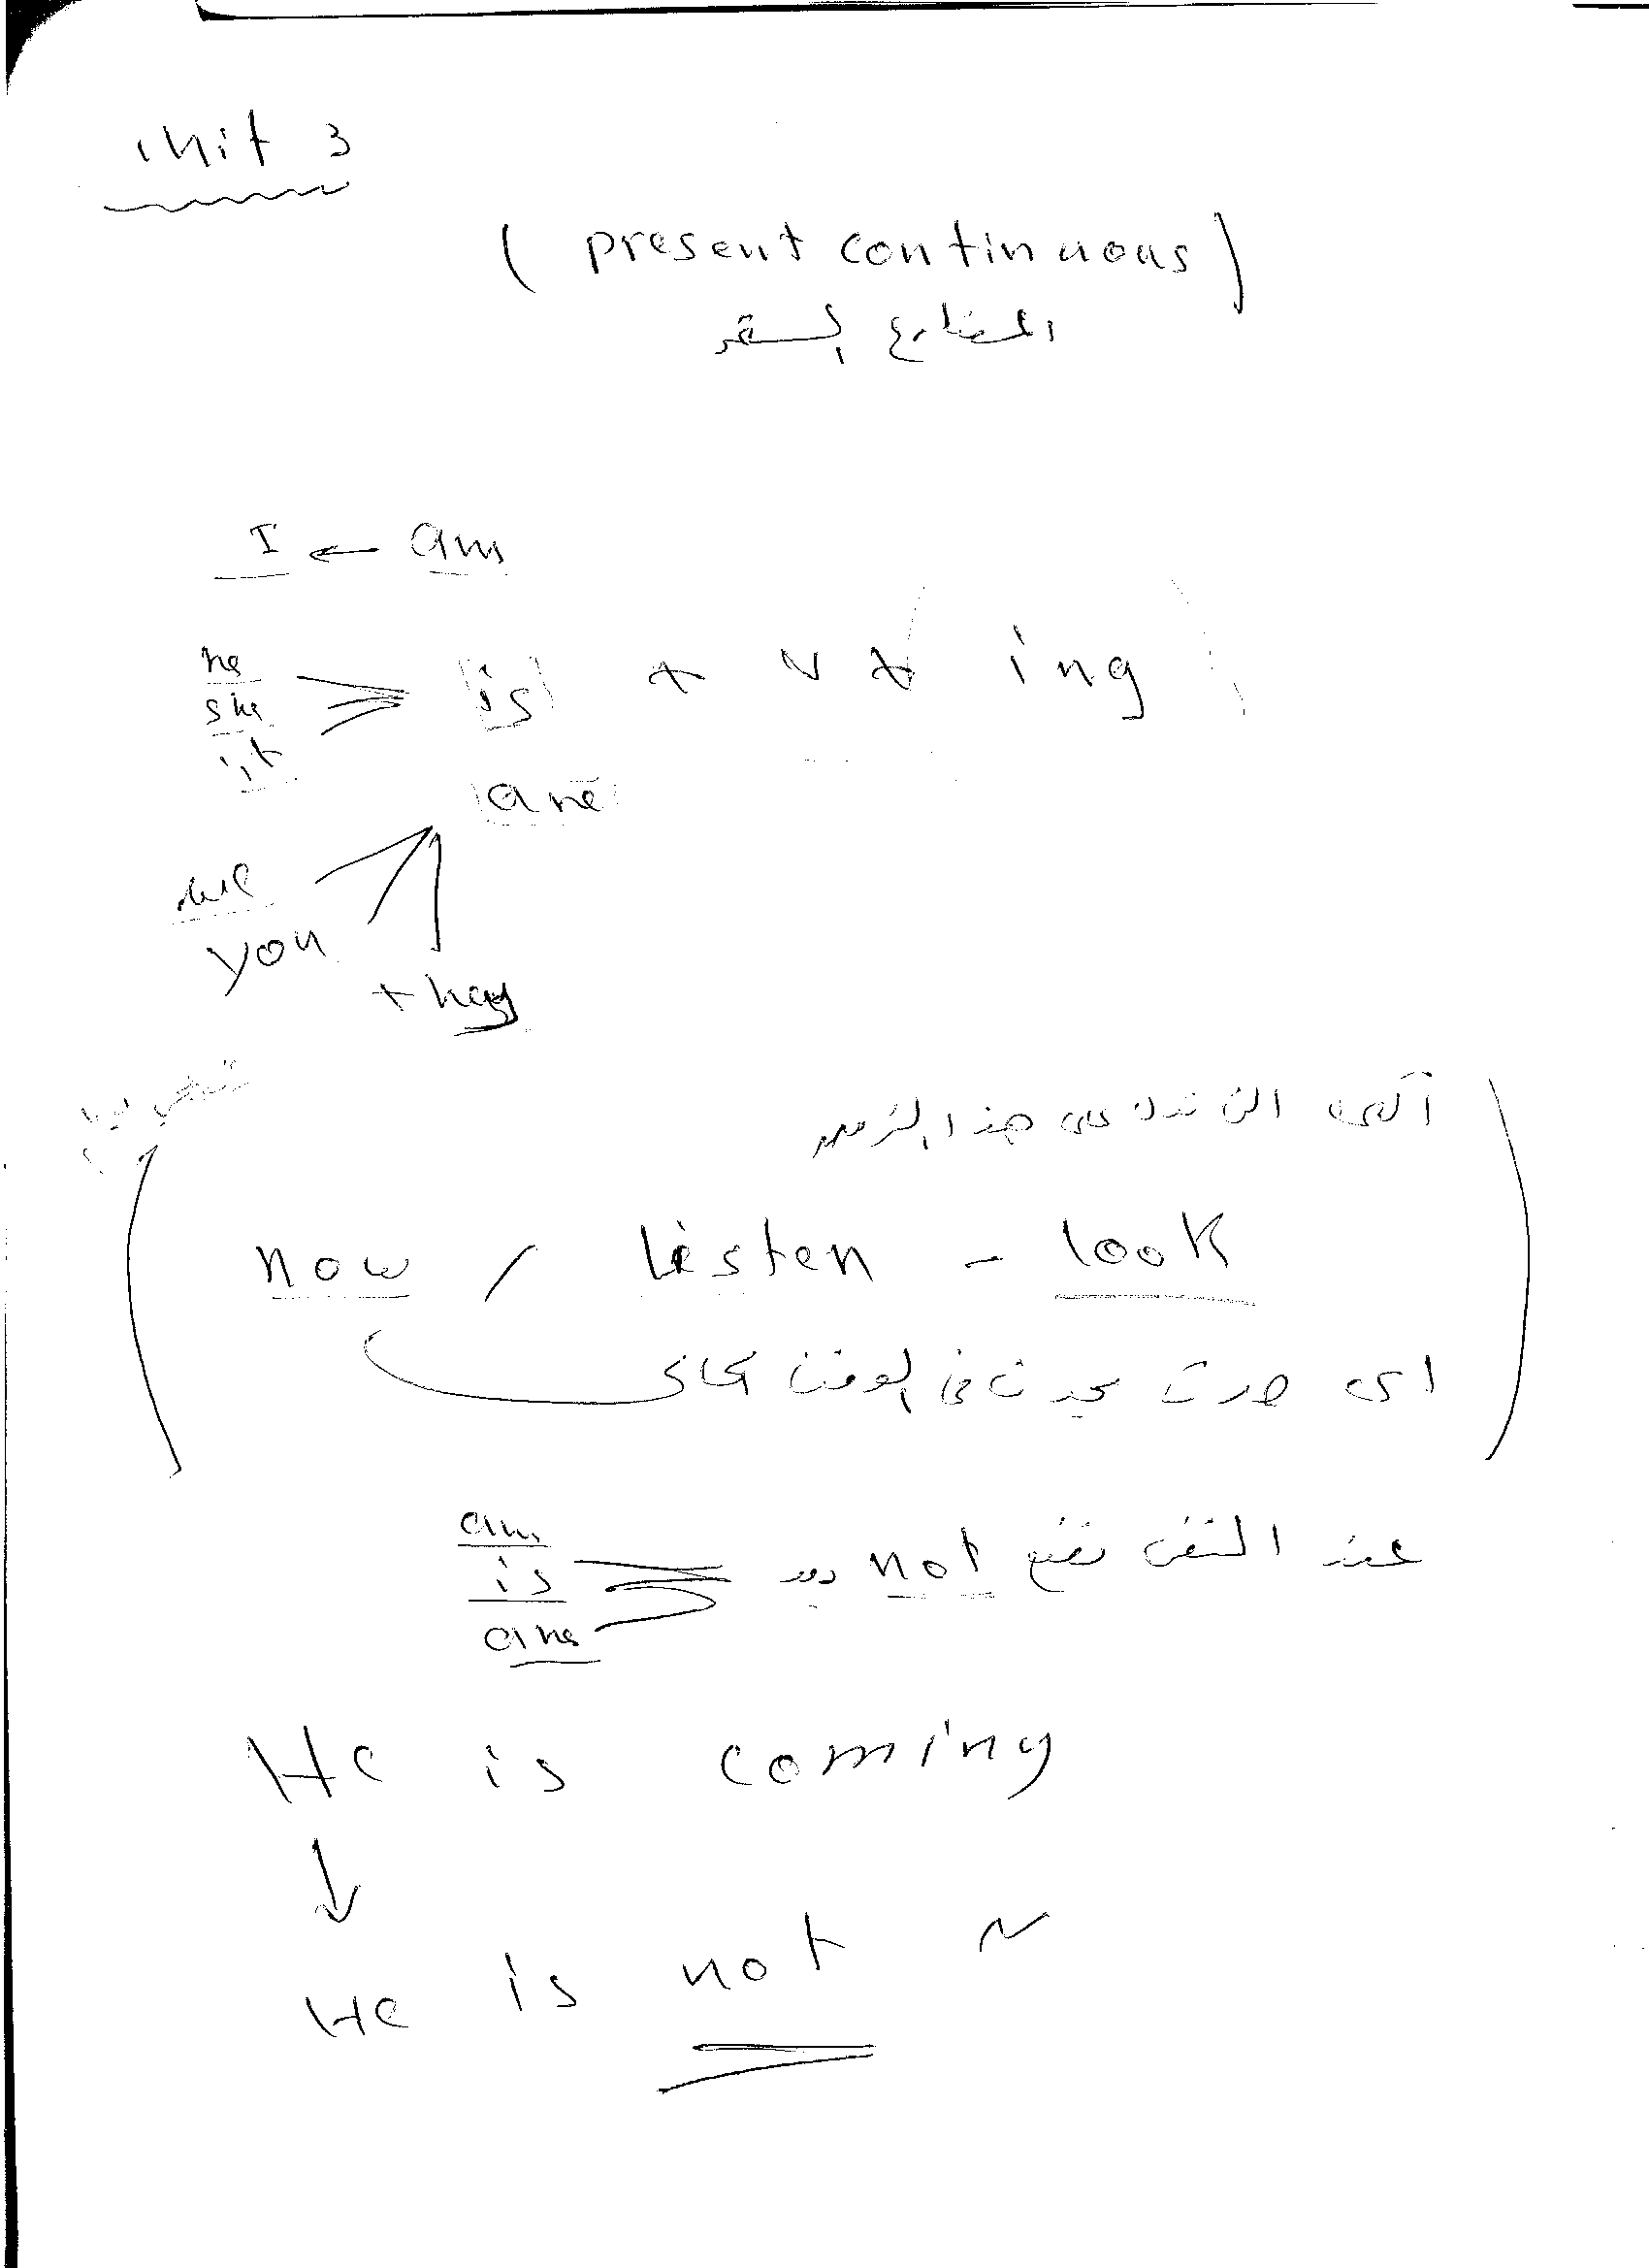 unit 3
( present continuous )
المضارع المستمر
I ← am
he
she
it
is + v + ing
are
we
you
they
التى تدل على هذا الزمن
now / listen - look
اى حدث يحدث فى الوقت الحالى
عند النفى نضع not بعد
am
is
are
He is coming
↓
He is not ~